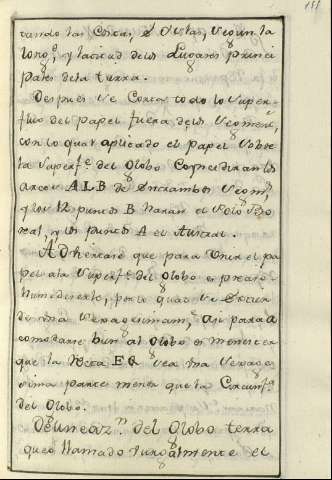 151
cando las Costas, è Yslas, segun la
long.ᵉ, y lacitud delos Lugares princi
pales dela tierra.
Despues se Corta todo lo super-
fluo del papel fuera delos Segment.ˢ
con lo qual aplicado el papel sobre
la superf.ᵉ del Globo Coincidiran los
arcos ALB de entrambos Segm.ˢ
y los 12 puntos B haran el Polo Bo
real, y los puntos A el Austral.
Adhertase que para Unir el pa
pel ala superf.ᵉ del Globo es preciso
humedecerlo, por lo qual se
di una sexagesima, asi para a
comodarse bien al Globo es menester
que la Recta EQ sea una sexage
sima parte menor que la Circunf.ᵃ
del Globo.
Delineaz.ⁿ del Globo terra
queo llamado Vulgarmente el